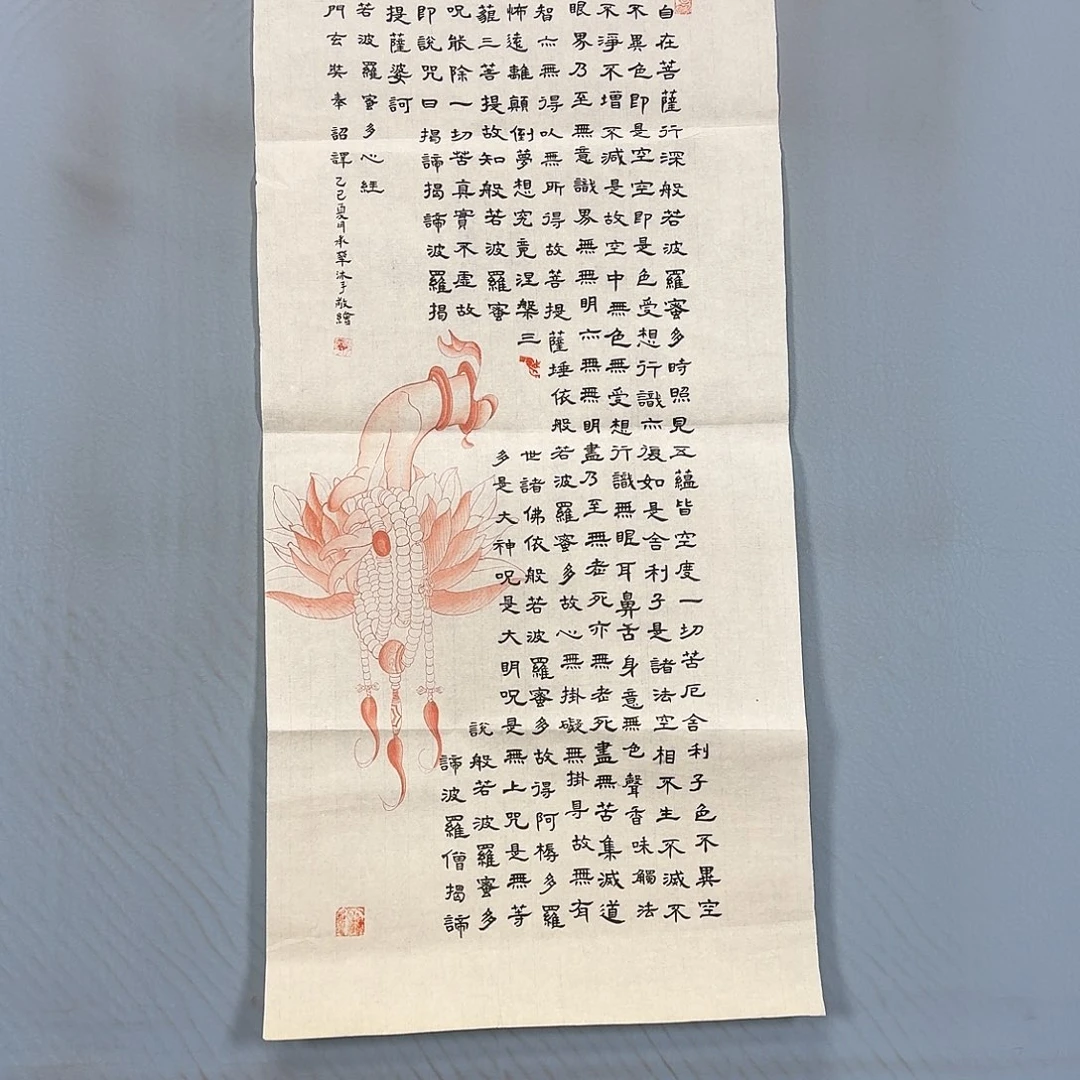 自在菩薩行深般若波羅蜜多時照見五蘊皆空度一切苦厄舍利子色不異空
不異色即是空空即是色受想行識亦復如是舍利子是諸法空相不生不滅不
不淨不增不減是故空中無色無受想行識無眼耳鼻舌身意無色聲香味觸法
眼界乃至無意識界無無明亦無無明盡乃至無老死亦無老死盡無苦集滅道
智亦無得以無所得故菩提薩埵依般若波羅蜜多故心無掛礙無掛㝵故無有
怖遠離顛倒夢想究竟涅槃三世諸佛依般若波羅蜜多故得阿耨多羅
藐三菩提故知般若波羅蜜多是大神咒是大明咒是無上咒是無等
咒能除一切苦真實不虛故說般若波羅蜜多
即說咒曰揭諦揭諦波羅揭諦波羅僧揭諦
提薩婆訶
若波羅蜜多心經
門玄奘奉詔譯乙巳夏月沐手敬繪